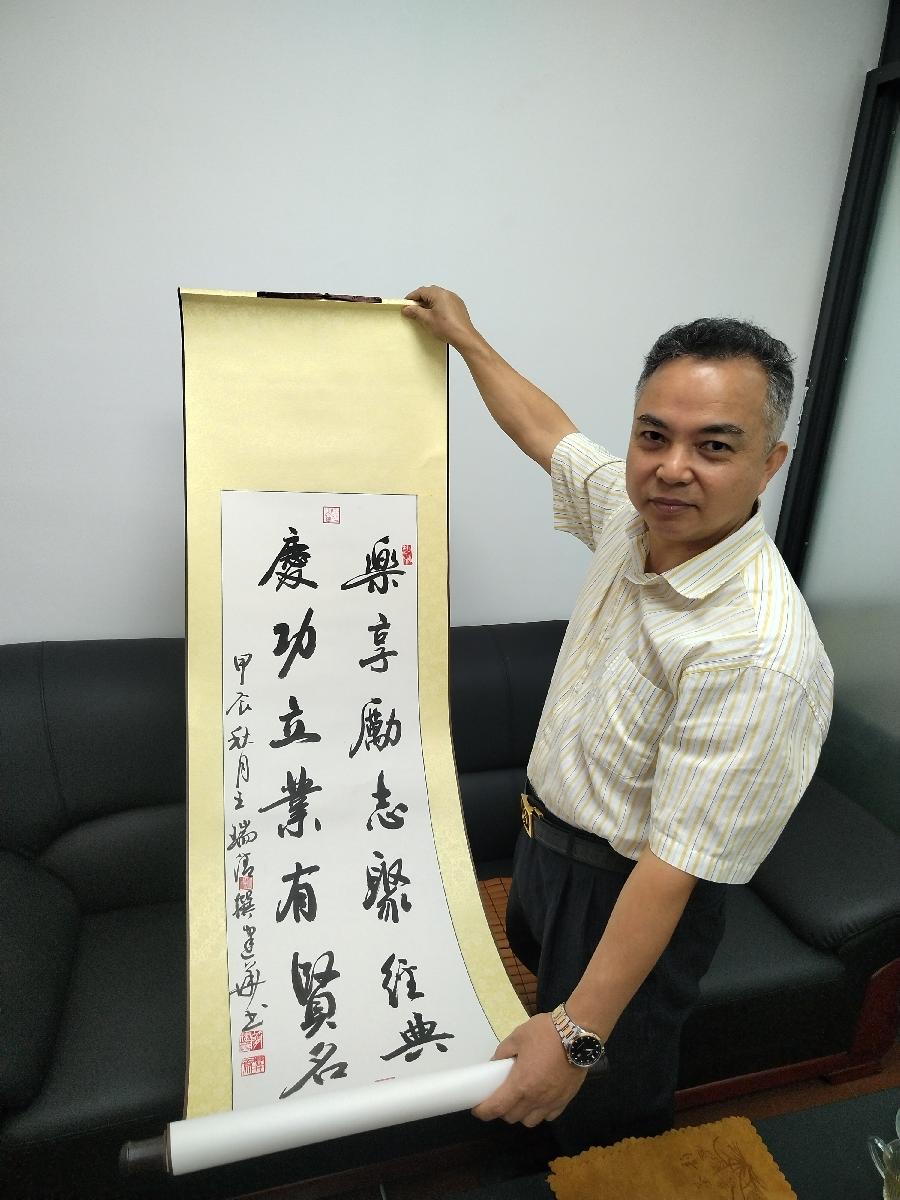 樂享勵志聚經典
慶功立業有賢名
甲辰秋月王瑞清撰建華书